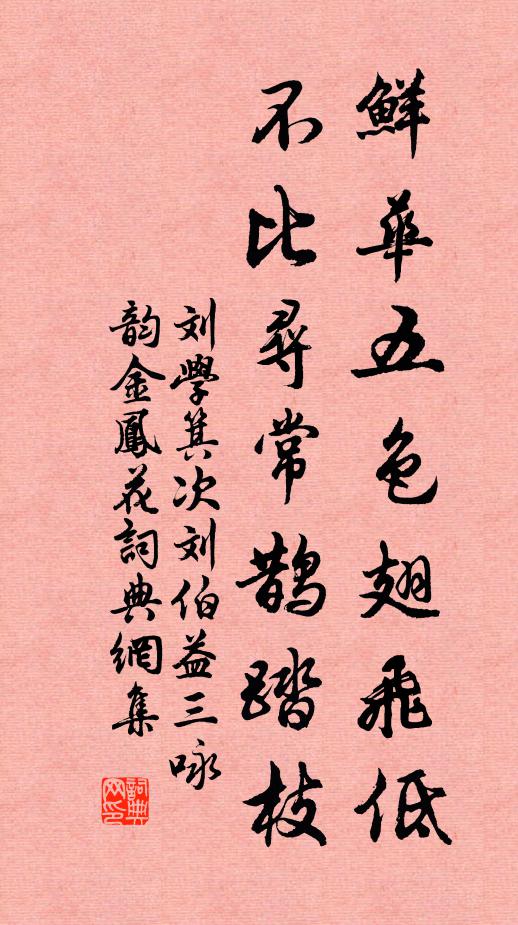 鮮華五色翅飛低
不比尋常鵲踏枝
刘學箕次刘伯益三咏
韵金鳳花詞典網集
詞典网印